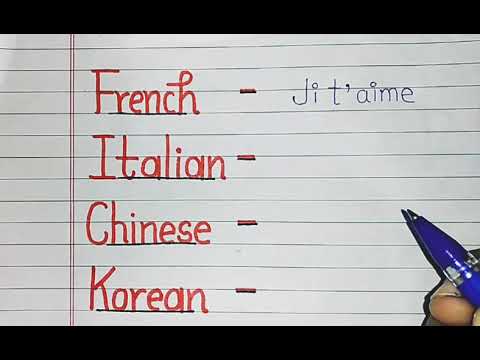 French - Ji t'aime
Italian -
Chinese -
Korean -